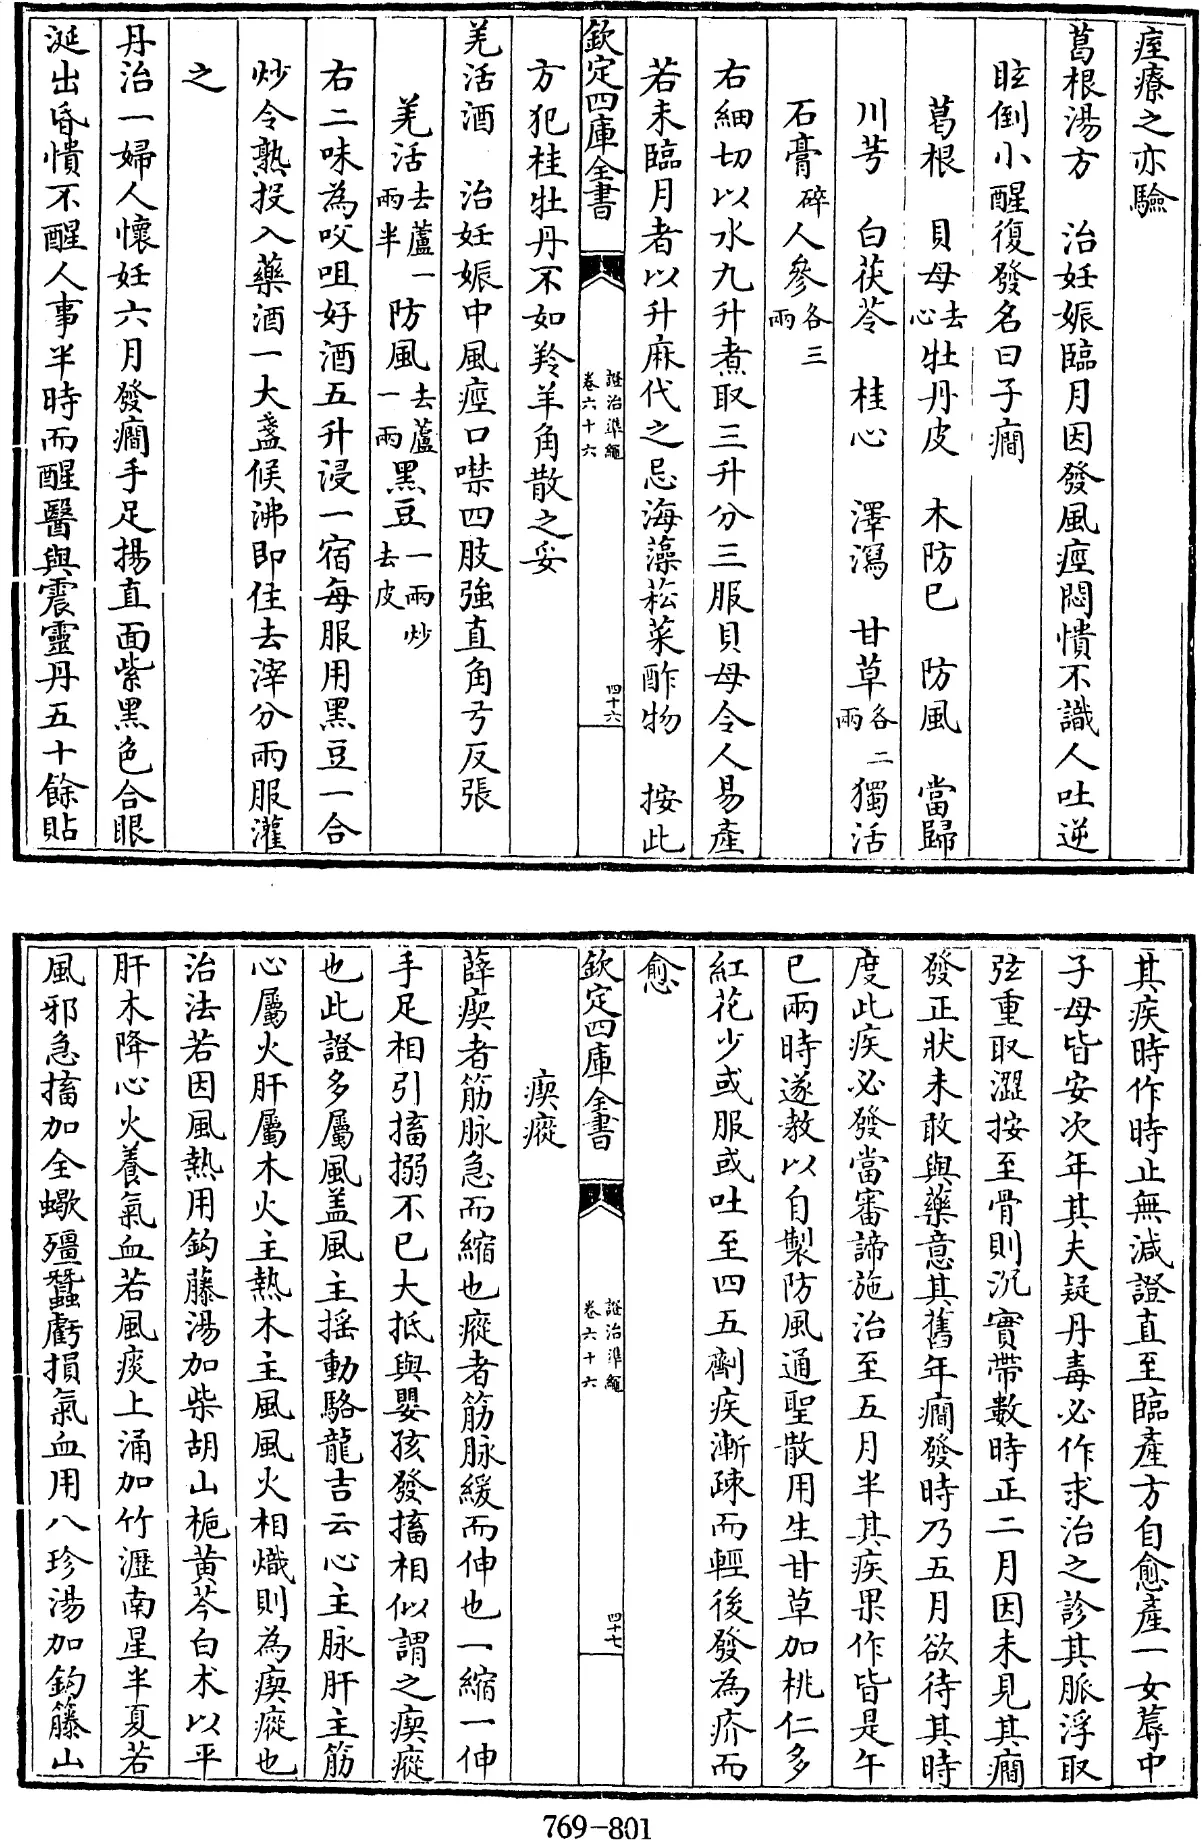 痓療之亦驗
葛根湯方　治妊娠臨月因發風痓悶憒不識人吐逆
眩倒小醒復發名曰子癎
葛根　貝母去心　牡丹皮　木防已　防風　當歸
川芎　白茯苓　桂心　澤瀉　甘草各二兩　獨活
石膏碎　人參各三兩
右細切以水九升煮取三升分三服貝母令人易產
若未臨月者以升麻代之忌海藻菘菜酢物　按此
欽定四庫全書
證治準繩
卷六十六
四十六
方犯桂牡丹不如羚羊角散之妥
羌活酒　治妊娠中風痙口噤四肢強直角弓反張
羌活去蘆一兩半　防風去蘆一兩　黑豆一兩炒去皮
右二味為㕮咀好酒五升浸一宿每服用黑豆一合
炒令熟投入藥酒一大盞候沸即住去滓分兩服灌
之
丹治一婦人懷妊六月發癎手足揚直面紫黑色合眼
涎出昏憒不醒人事半時而醒醫與震靈丹五十餘貼
其疾時作時止無減證直至臨產方自愈產一女蓐中
子母皆安次年其夫疑丹毒必作求治之診其脈浮取
弦重取澀按至骨則沉實帶數時正二月因未見其癎
發正狀未敢與藥意其舊年癎發時乃五月欲待其時
度此疾必發當審諦施治至五月半其疾果作皆是午
已兩時遂教以自製防風通聖散用生甘草加桃仁多
紅花少或服或吐至四五劑疾漸疎而輕後發為疥而
愈
欽定四庫全書
證治準繩
卷六十六
四十七
瘈瘲
薛瘈者筋脉急而縮也瘲者筋脉緩而伸也一縮一伸
手足相引搐搦不已大抵與嬰孩發搐相似謂之瘈瘲
也此證多屬風盖風主搖動駱龍吉云心主脉肝主筋
心屬火肝屬木火主熱木主風風火相熾則為瘈瘲也
治法若因風熱用鈎藤湯加柴胡山梔黃芩白术以平
肝木降心火養氣血若風痰上涌加竹瀝南星半夏若
風邪急搐加全蠍殭蠶虧損氣血用八珍湯加鈎籐山
769-801